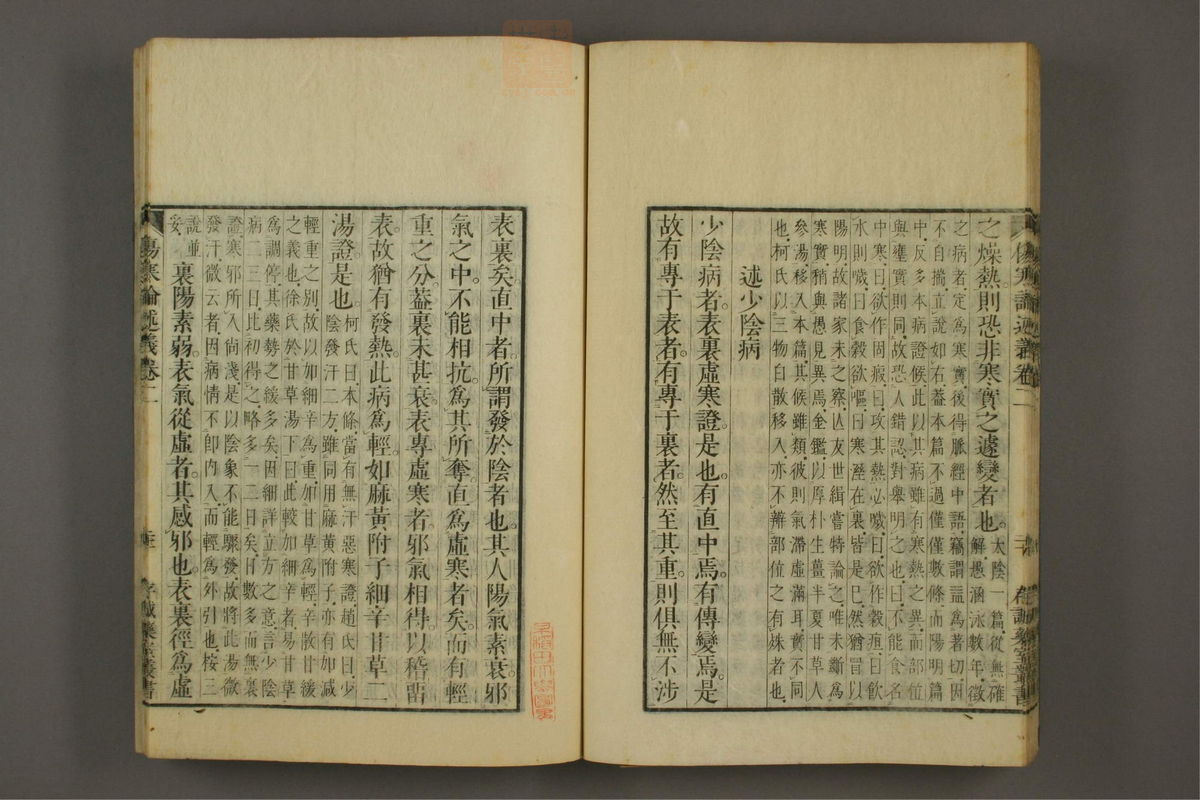 之燥熱則恐非寒實之遽變者也太陰一篇從無確
解愚涵泳數年徵
之病者定爲寒實後得脈經中語竊謂諡爲著切因
不自揣立說如右蓋本篇不過僅僅數條而陽明篇
中反多本病證候此以其病雖有寒熱之異而部位
與壅實則同故恐人錯認對舉明之也曰不能食名
中寒曰欲作固瘕曰攻其熱必噦曰欲作穀疸曰飮
水則噦曰食穀欲嘔曰寒溼在裏皆是已然猶冒以
陽明故諸家未之察亾友世緝嘗特論之唯未斷爲
寒實稍與愚見異焉金鑑以厚朴生薑半夏甘草人
參湯移入本篇其候雖類彼則氣滯虛滿耳實不同
也柯氏以三物白散移入亦不辨部位之有殊者也
述少陰病
少陰病者表裏虛寒證是也有直中焉有傳變焉是
故有專于表者有專于裏者然至其重則俱無不涉
傷寒論述義卷二
存誠藥室叢書
表裏矣直中者所謂發於陰者也其人陽氣素衰邪
氣之中不能相抗爲其所奪直爲虛寒者矣而有輕
重之分蓋裏未甚衰表專虛寒者邪氣相得以稽畱
表故猶有發熱此病爲輕如麻黃附子細辛甘草二
湯證是也柯氏曰本條當有無汗惡寒證趙氏曰少
陰發汗二方雖同用麻黃附子亦有加減
輕重之別故以加細辛爲重加甘草爲輕辛散甘緩
之義也徐氏於甘草湯下曰此較加細辛者易甘草
爲調停其藥勢之緩多矣因細詳立方之意言少陰
病二三日比初得之略多一二日矣日數多而無裏
證寒邪所入尙淺是以陰象不能驟發故將此湯微
發汗微云者因病情不卽內入而輕爲外引也桉三
說並
妥裏陽素弱表氣從虛者其感邪也表裏徑爲虛
傷寒論述義卷二
存誠藥室叢書